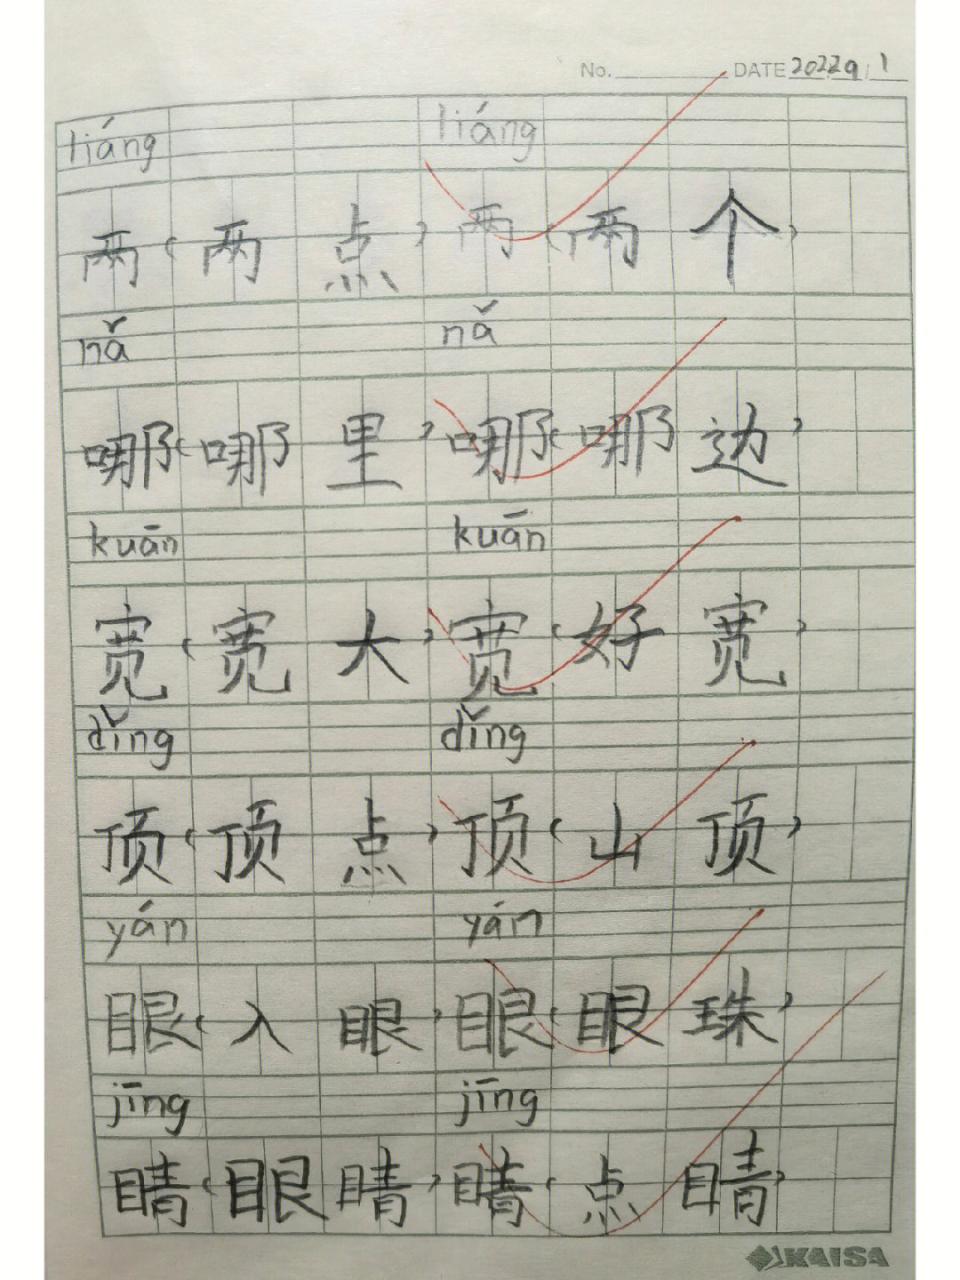 No. DATE 2022 9 1
liáng liáng
两(两点)两(两个)
nǎ nǎ
哪(哪里)哪(哪边)
kuān kuān
宽(宽大)宽(好宽)
dǐng dǐng
顶(顶点)顶(山顶)
yán yán
眼(入眼)眼(眼珠)
jīng jīng
睛(眼睛)睛(点睛)
KAISA